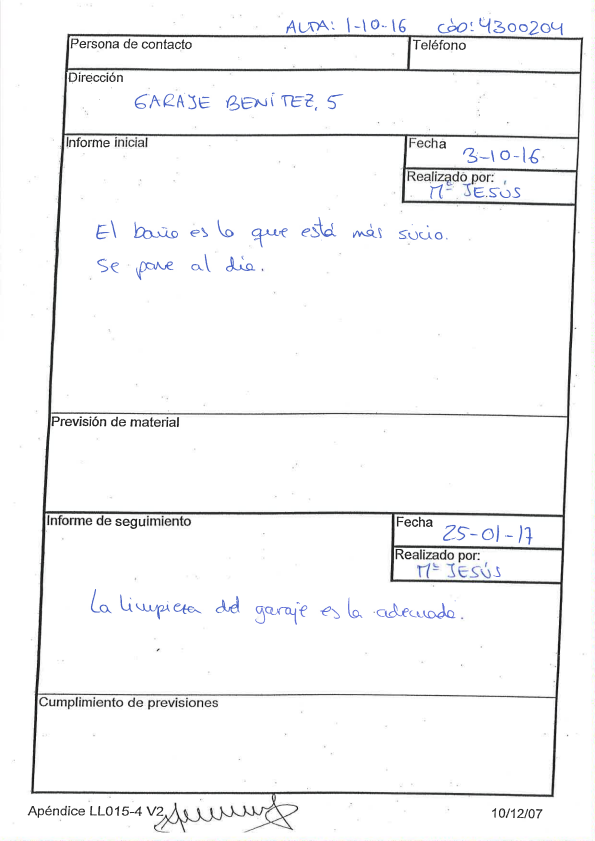 ALTA: 1-10-16 CÓD: 4300204
Persona de contacto
Teléfono
Dirección
GARAJE BENÍTEZ, 5
Informe inicial
Fecha
3-10-16
Realizado por:
Mª JESÚS
El baño es lo que está más sucio.
Se pone al día.
Previsión de material
Informe de seguimiento
Fecha
25-01-17
Realizado por:
Mª JESÚS
La limpieza del garaje es la adecuada.
Cumplimiento de previsiones
Apéndice LL015-4 V2
10/12/07